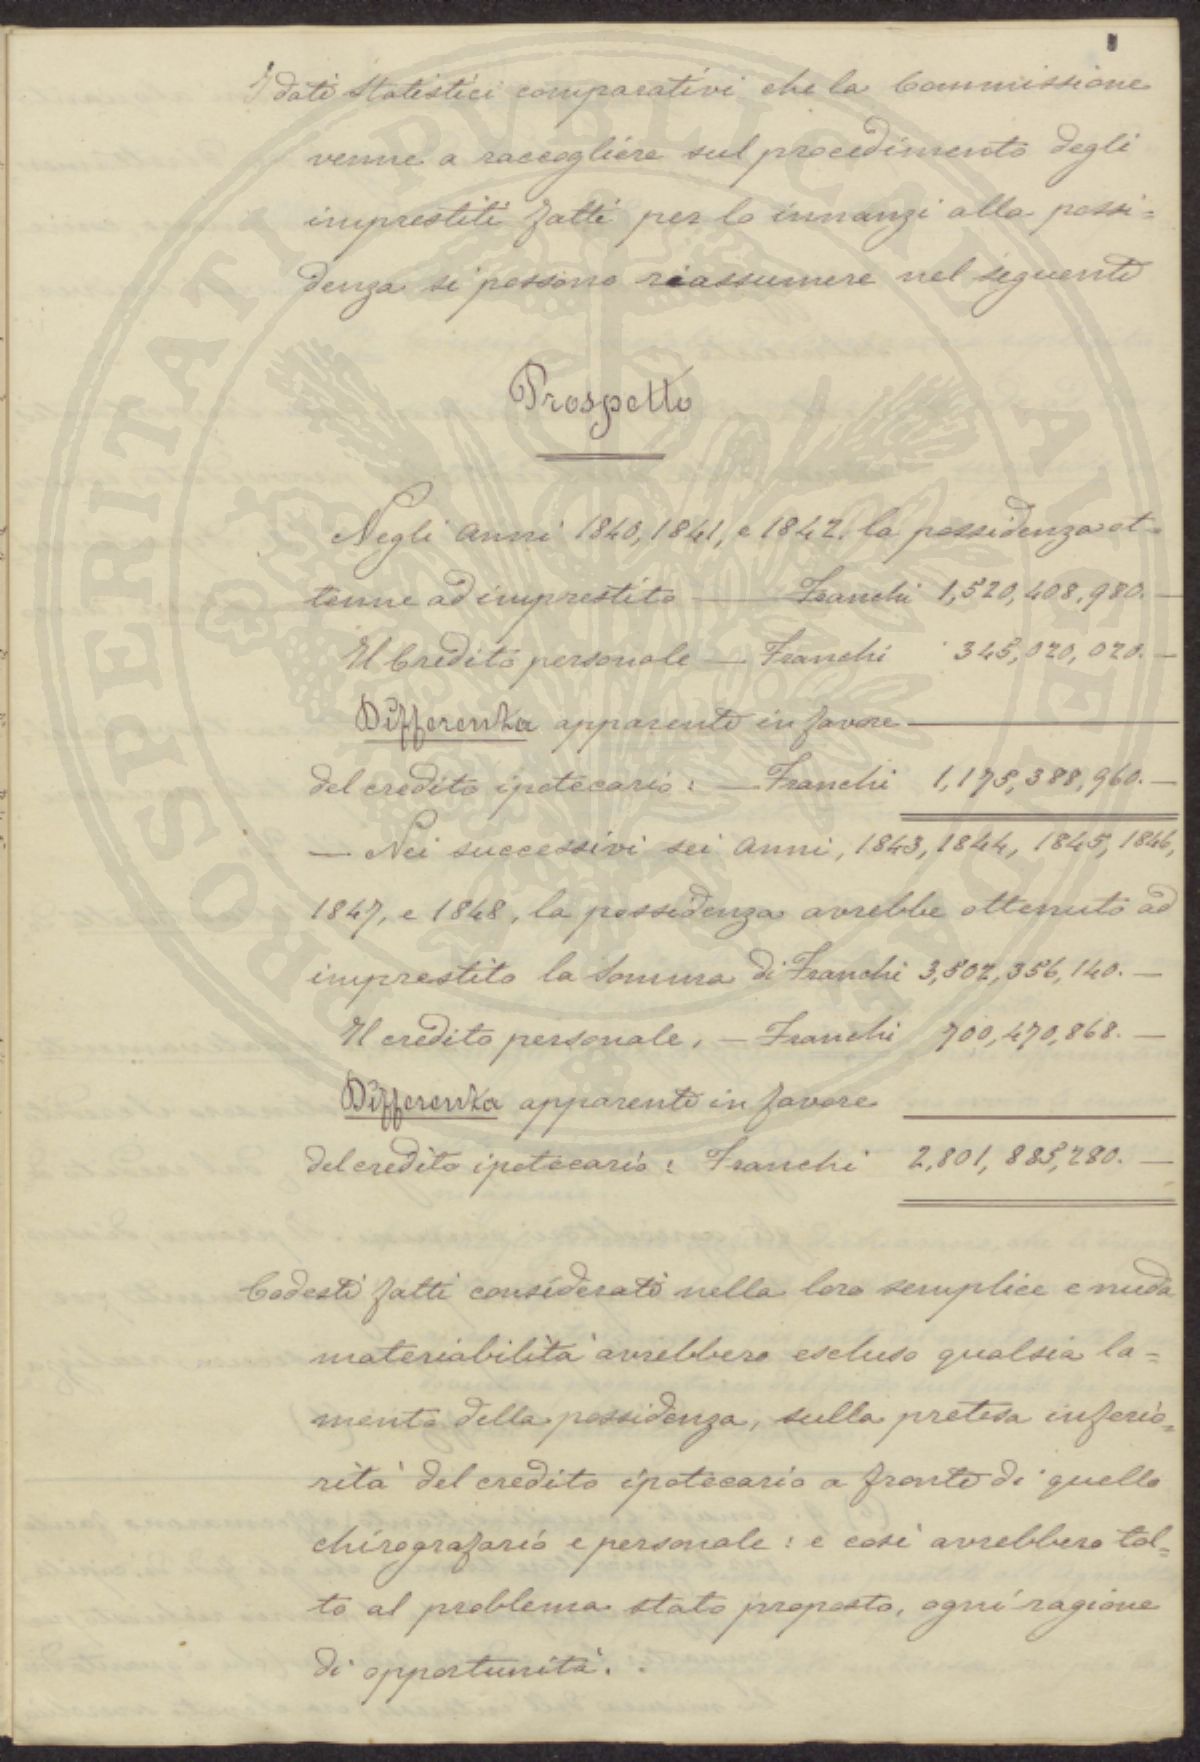 I dati statistici comparativi che la Commissione
venne a raccogliere sul procedimento degli
imprestiti fatti per lo innanzi alla possi=
denza si possono riassumere nel seguente
Prospetto
Negli anni 1840, 1841, e 1842. la possidenza ot=
tenne ad imprestito — Franchi 1,520,408,980. —
Il Credito personale — Franchi 345,020,020. —
Differenza apparente in favore
del credito ipotecario: — Franchi 1,175,388,960. —
— Nei successivi sei anni, 1843, 1844, 1845, 1846,
1847, e 1848, la possidenza avrebbe ottenuto ad
imprestito la somma di Franchi 3,502,356,140. —
Il credito personale, — Franchi 700,470,868. —
Differenza apparente in favore
del credito ipotecario: Franchi 2,801,885,280. —
Codesti fatti considerati nella loro semplice e nuda
materiabilità avrebbero escluso qualsia la=
mento della possidenza, sulla pretesa inferio=
rità del credito ipotecario a fronte di quello
chirografario e personale: e così avrebbero tol=
to al problema stato proposto, ogni ragione
di opportunità.
PROSPERITATI PUBLICAE AUGENDAE